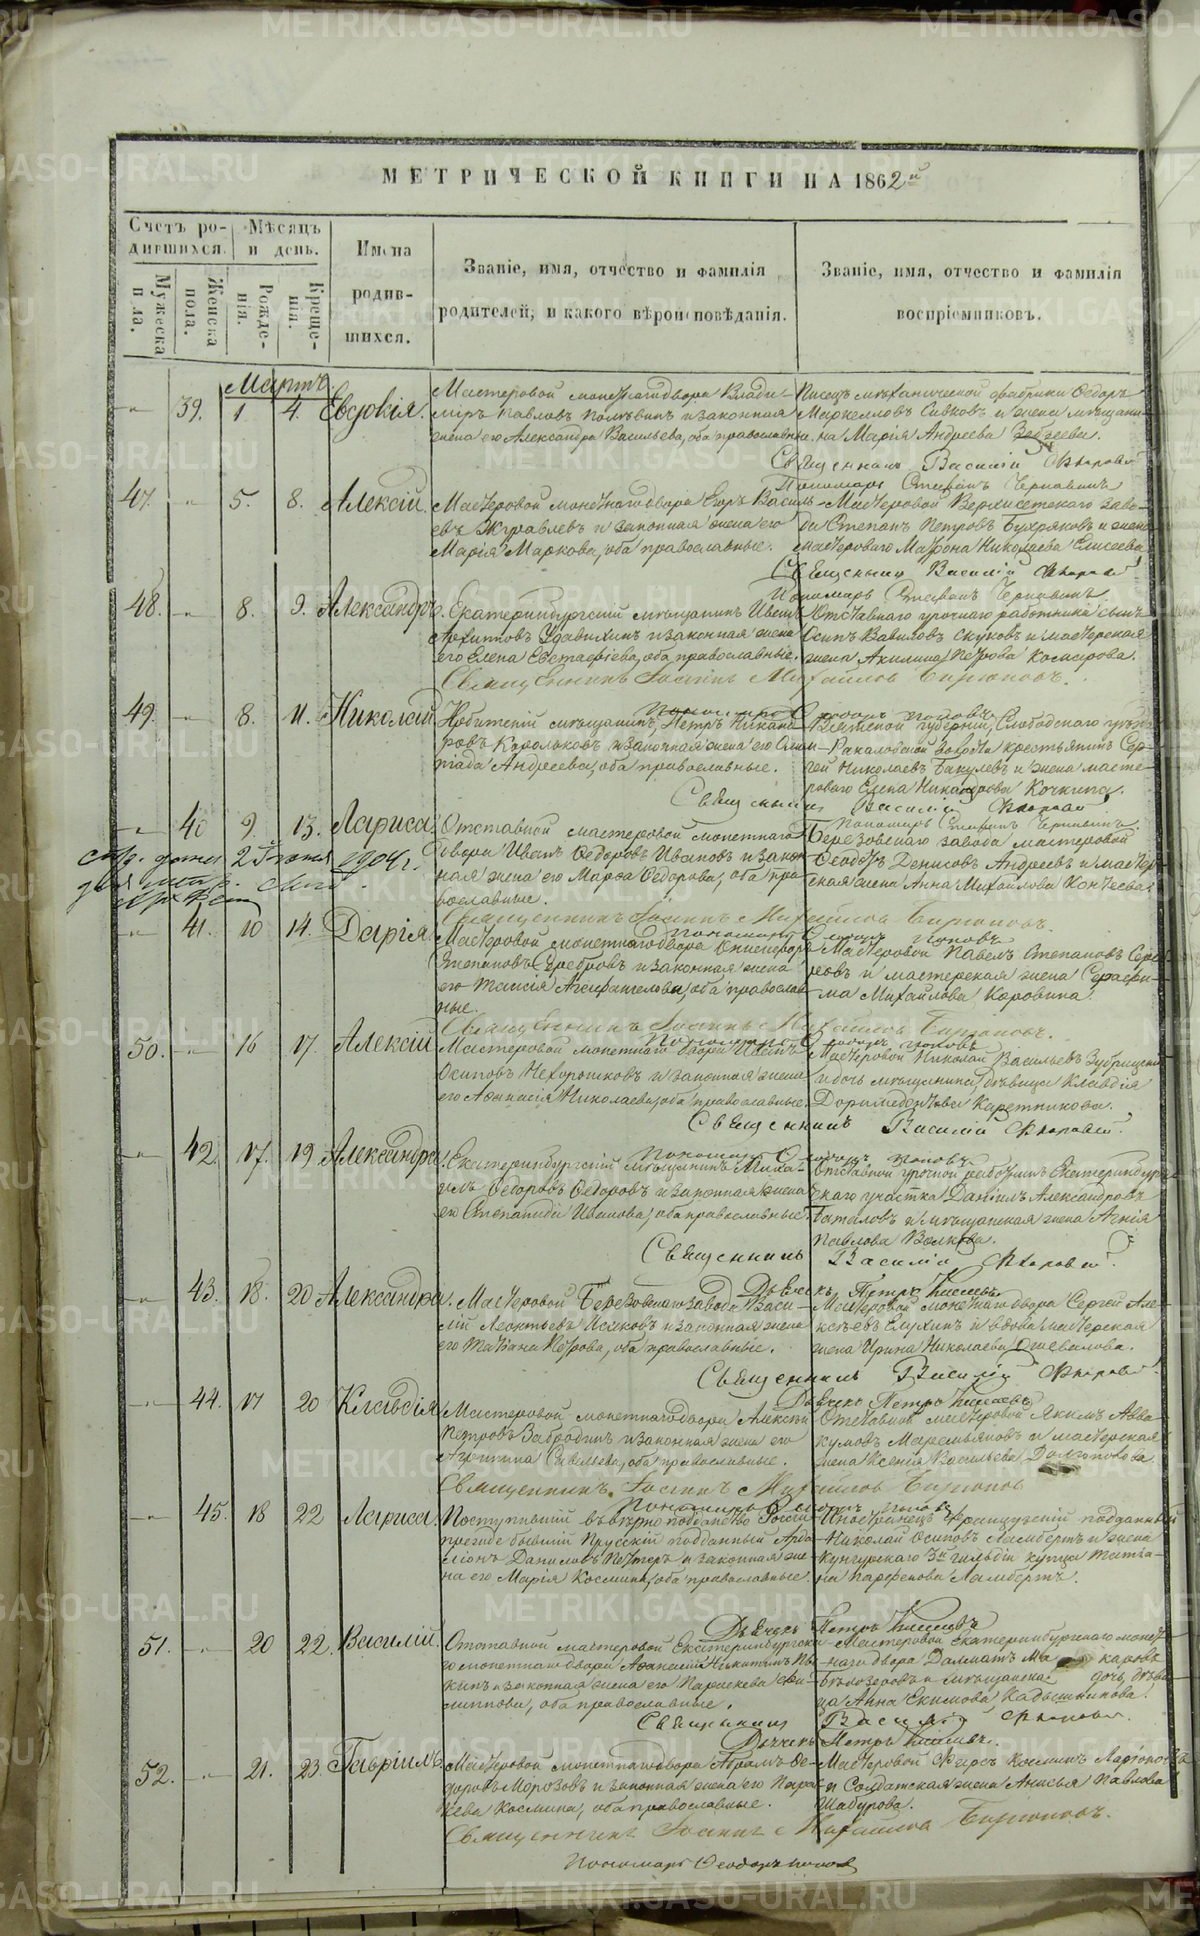 МЕТРИЧЕСКОЙ КНИГИ НА 1862й
Счетъ родившихся.
Мѣсяцъ и день.
Имена родившихся.
Званіе, имя, отчество и фамилія родителей, и какого вѣроисповѣданія.
Званіе, имя, отчество и фамилія воспріемниковъ.
Мужеска пола.
Женска пола.
Рожденія.
Крещенія.
Мартъ
39. 1 4. Евдокія.
Мастеровой монетнаго двора Владиміръ Павловъ и законная
жена его Александра Васильева, оба православные.
Писецъ механической фабрики Ѳедоръ
Маркелловъ Сивковъ и жена мѣщанина Марія Андреева
Священникъ Василій
Пономарь Стефанъ
47. 5. 8. Алексій.
Мастеровой монетнаго двора Егоръ Васильевъ Журавлевъ и законная жена его
Марія Маркова, оба православные.
Мастеровой Верхисетскаго завода Степанъ Петровъ и жена
мастероваго Матрона Николаева Елисеева
Священникъ Василій
Пономарь Стефанъ
48. 8. 9. Александръ.
Екатеринбургскій мѣщанинъ Иванъ
Архиповъ и законная жена
его Елена Евстафіева, оба православные.
Отставнаго урочнаго работника сынъ
Осипъ Вавиловъ и мастерская
жена Акилина Петрова Комарова.
Священникъ Іоаннъ Михайловъ Бирюковъ.
Пономарь Ѳеодоръ Поповъ
49. 8. 11. Николай
мѣщанинъ Петръ Никандровъ Корольковъ и законная жена его
Андреева, оба православные.
Вятской губерніи, Слободскаго уѣзда
волости крестьянинъ Сергей Николаевъ Бакулевъ и жена мастероваго Елена Никандрова Кочкина.
Священникъ Василій
Пономарь Стефанъ
40 9. 13. Лариса.
Отставной мастеровой монетнаго
двора Иванъ Ѳедоровъ Ивановъ и законная жена его Марѳа Ѳедорова, оба православные.
Березовскаго завода мастеровой
Ѳеодоръ Денисовъ Андреевъ и мастерская жена Анна Михайлова
1904 г.
Священникъ Іоаннъ Михайловъ Бирюковъ.
Пономарь Ѳеодоръ Поповъ
41. 10 14. Дарія.
Мастеровой монетнаго двора
Степановъ Серебровъ и законная жена
его Таисія, оба православные.
Мастеровой Павелъ Степановъ
и мастерская жена Серафима Михайлова Коровина.
Священникъ Іоаннъ Михайловъ Бирюковъ.
Пономарь Ѳеодоръ Поповъ
50. 16 17. Алексій
Мастеровой монетнаго двора Иванъ
Осиповъ Нехорошковъ и законная жена
его Аѳанасія Николаева, оба православные.
Мастеровой Николай Васильевъ
и дочь мѣщанина, дѣвица Клавдія
Доримедонтова Каретникова.
Священникъ Василій
Пономарь Ѳеодоръ Поповъ
42. 17. 19 Александра.
Екатеринбургскій мѣщанинъ Михаилъ Ѳедоровъ Ѳедоровъ и законная жена
его Степанида Иванова, оба православные.
Отставной урочной работникъ Екатеринбургскаго участка Даніилъ Александровъ
Баталовъ и мѣщанская жена Агнія
Павлова Волкова.
Священникъ Василій
Дьячекъ Петръ
43. 18. 20 Александра.
Мастеровой Березовскаго завода Василій Леонтьевъ Исаковъ и законная жена
его Татіана Петрова, оба православные.
Мастеровой монетнаго двора Сергей Алексѣевъ и вдова мастерская
жена Ирина Николаева
Священникъ Василій
Дьячекъ Петръ
44. 17 20 Клавдія
Мастеровой монетнаго двора Алексѣй
Петровъ Забродинъ и законная жена его
Агрипина Савельева, оба православные.
Отставной мастеровой Якимъ Аввакумовъ и мастерская
жена Ксенія Васильева Долгополова.
Священникъ Іоаннъ Михайловъ Бирюковъ
Пономарь Ѳеодоръ Поповъ
45. 18 22 Лариса.
Поступившій въ вѣрноподданство Россіи
прежде бывшій Прусскій подданный
Даниловъ и законная жена его Марія Космина, оба православные.
Иностранецъ Французскій подданный
Николай Осиповъ Ламбертъ и жена
Кунгурскаго 3й гильдіи купца Татіана Парфенова Ламбертъ.
Дьячекъ Петръ
51. 20 22. Василій.
Отставной мастеровой Екатеринбургскаго монетнаго двора Аѳанасій Никитинъ
и законная жена его Параскева Филиппова, оба православные.
Мастеровой Екатеринбургскаго монетнаго двора Далматъ Макаровъ
Бѣлозеровъ и мѣщанская дочь, дѣвица Анна Екимова Кадышникова.
Священникъ Василій
Дьячекъ Петръ
52. 21. 23. Гавріилъ.
Мастеровой монетнаго двора Абрамъ Ѳедоровъ Морозовъ и законная жена его Параскева Космина, оба православные.
Мастеровой Фирсъ Косминъ Ларіоновъ
и Солдатская жена Анисья Павлова
Шабурова.
Священникъ Іоаннъ Михайловъ Бирюковъ.
Пономарь Ѳеодоръ Поповъ
METRIKI.GASO-URAL.RU